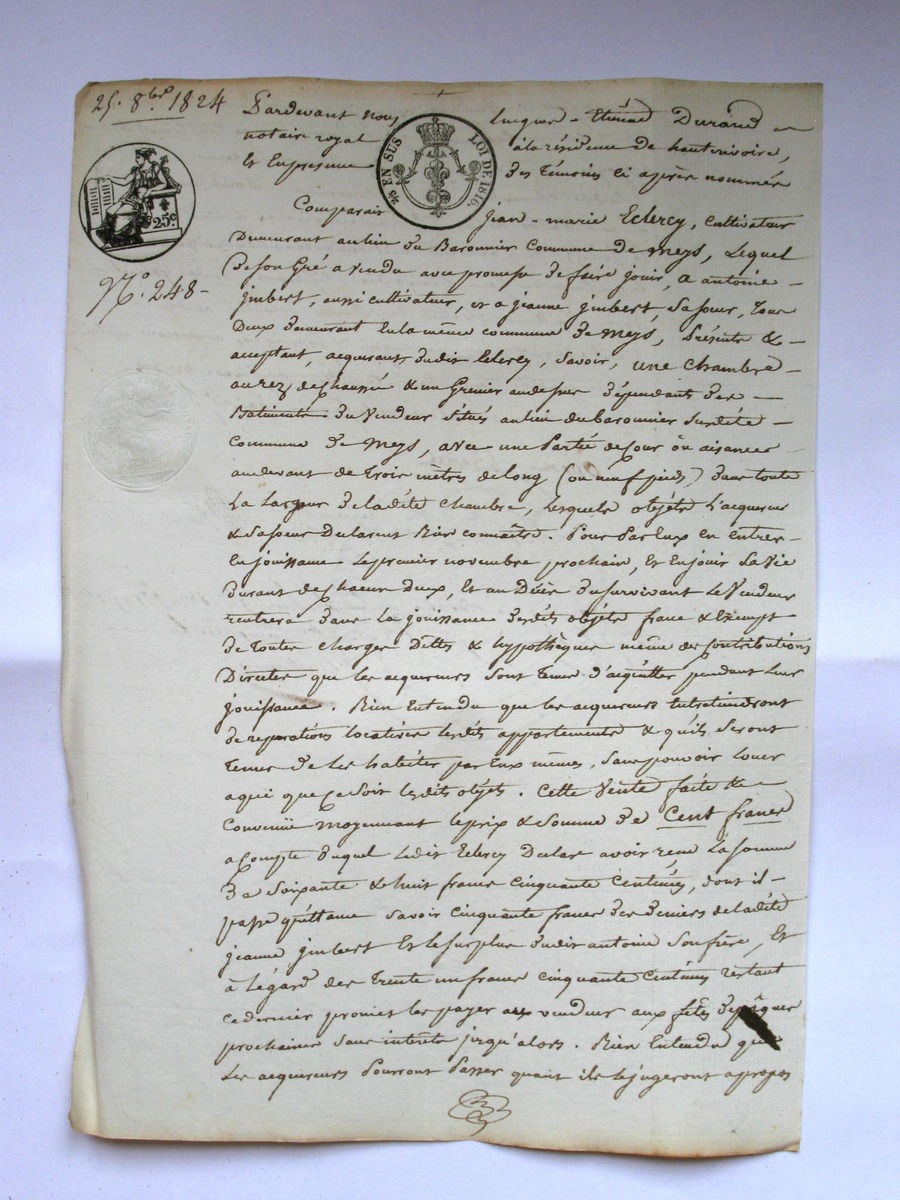 25. 8bre 1824
Pardevant nous Jacques-Etienne Durand
notaire royal à la résidence de hauterivoire,
Et En presence des Témoins ci après nommés
EN SUS
LOI DE 1816.
25c.
N.º 248-
Comparait jean-marie Eclercy, cultivateur
Demeurant au lieu du Baronnier Commune de Meys, Lequel
de son Gré a vendu avec promesse de faire jouir, a antoine
jmbert, aussi cultivateur, et a jeanne jmbert, sa sœur, Tous
Deux demeurant En la même commune de Meys, Présents &
acceptant, acquerants dudit Eclercy, Savoir, une chambre
au rez de chaussée & un Grenier au dessus dépendant des
Batiments du Vendeur Situés au lieu du baronnier Susdite
Commune de Meys, avec une Partie de Cour ou aisances
au devant de Trois mètres de long (ou neuf pieds) dans toute
La Largeur de ladite chambre, Lesquels objets L'acquereur
& Sa sœur Declarent Bien connaître. Pour Par Eux en entrer
En jouissance Le premier novembre prochain, Et En jouir La vie
Durant de chacun deux, Et au Décès du survivant Le Vendeur
rentrera dans La jouissance desdits objets franc & Exempt
de Toutes charges Dettes & hypothèques même des Contributions
Directes que les acquereurs sont Tenus d'acquitter pendant Leur
jouissance. Bien Entendu que les acquereurs Entretiendront
de reparations locatives lesdits appartements & qu'ils seront
Tenus de Les habiter par Eux mêmes, Sans pouvoir Louer
a qui que ce Soit lesdits objets. Cette Vente faite &
Convenüe moyennant le prix & Somme de Cent francs
a Compte duquel Ledit Eclercy Declare avoir reçu La somme
de Soixante & huit francs Cinquante Centimes, dont il
passe quittance Savoir Cinquante francs des deniers de ladite
jeanne jmbert Et le surplus dudit antoine Son frère, Et
à L'égard des Trente un francs cinquante Centimes restant
ce dernier promet les payer au vendeur aux fêtes de pâques
prochaines sans intérêts jusqu'alors. Bien Entendu que
Les acquereurs Pourront Passer quant ils le jugeront a propos